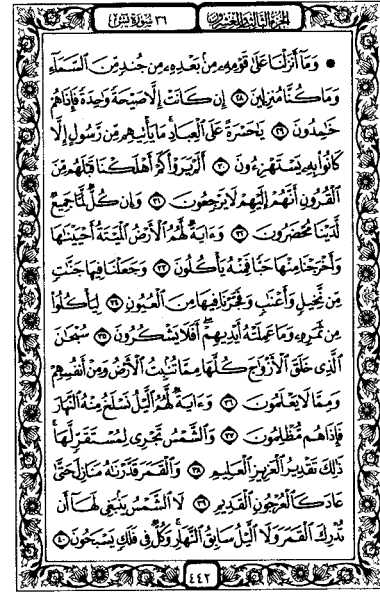 الجزء الثالث والعشرون ٣٦ سورة يس
• وَمَا أَنزَلْنَا عَلَىٰ قَوْمِهِۦ مِنۢ بَعْدِهِۦ مِن جُندٍ مِّنَ ٱلسَّمَآءِ
وَمَا كُنَّا مُنزِلِينَ ٢٨ إِن كَانَتْ إِلَّا صَيْحَةً وَٰحِدَةً فَإِذَا هُمْ
خَٰمِدُونَ ٢٩ يَٰحَسْرَةً عَلَى ٱلْعِبَادِ مَا يَأْتِيهِم مِّن رَّسُولٍ إِلَّا
كَانُوا۟ بِهِۦ يَسْتَهْزِءُونَ ٣٠ أَلَمْ يَرَوْا۟ كَمْ أَهْلَكْنَا قَبْلَهُم مِّنَ
ٱلْقُرُونِ أَنَّهُمْ إِلَيْهِمْ لَا يَرْجِعُونَ ٣١ وَإِن كُلٌّ لَّمَّا جَمِيعٌ
لَّدَيْنَا مُحْضَرُونَ ٣٢ وَءَايَةٌ لَّهُمُ ٱلْأَرْضُ ٱلْمَيْتَةُ أَحْيَيْنَٰهَا
وَأَخْرَجْنَا مِنْهَا حَبًّا فَمِنْهُ يَأْكُلُونَ ٣٣ وَجَعَلْنَا فِيهَا جَنَّٰتٍ
مِّن نَّخِيلٍ وَأَعْنَٰبٍ وَفَجَّرْنَا فِيهَا مِنَ ٱلْعُيُونِ ٣٤ لِيَأْكُلُوا۟
مِن ثَمَرِهِۦ وَمَا عَمِلَتْهُ أَيْدِيهِمْ أَفَلَا يَشْكُرُونَ ٣٥ سُبْحَٰنَ
ٱلَّذِى خَلَقَ ٱلْأَزْوَٰجَ كُلَّهَا مِمَّا تُنۢبِتُ ٱلْأَرْضُ وَمِنْ أَنفُسِهِمْ
وَمِمَّا لَا يَعْلَمُونَ ٣٦ وَءَايَةٌ لَّهُمُ ٱلَّيْلُ نَسْلَخُ مِنْهُ ٱلنَّهَارَ
فَإِذَا هُم مُّظْلِمُونَ ٣٧ وَٱلشَّمْسُ تَجْرِى لِمُسْتَقَرٍّ لَّهَا
ذَٰلِكَ تَقْدِيرُ ٱلْعَزِيزِ ٱلْعَلِيمِ ٣٨ وَٱلْقَمَرَ قَدَّرْنَٰهُ مَنَازِلَ حَتَّىٰ
عَادَ كَٱلْعُرْجُونِ ٱلْقَدِيمِ ٣٩ لَا ٱلشَّمْسُ يَنۢبَغِى لَهَآ أَن
تُدْرِكَ ٱلْقَمَرَ وَلَا ٱلَّيْلُ سَابِقُ ٱلنَّهَارِ وَكُلٌّ فِى فَلَكٍ يَسْبَحُونَ ٤٠
٤٤٢